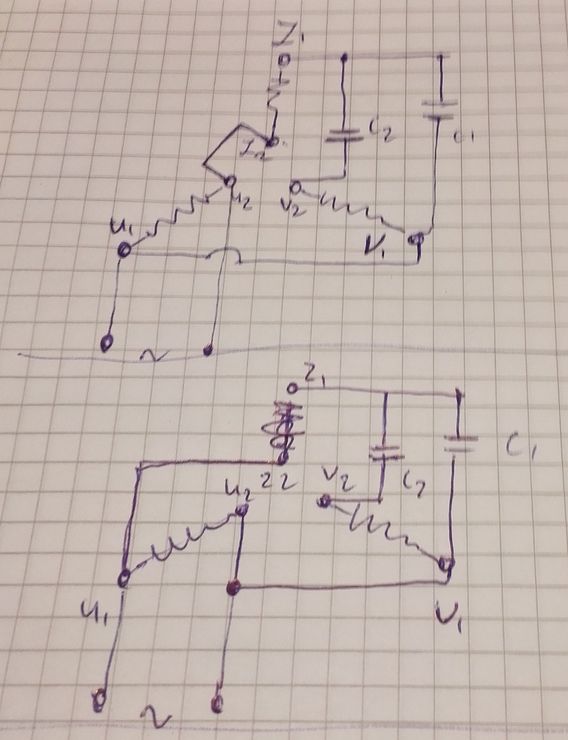 Z1
C2
C1
Z2
U2
V2
U1
V1
~
Z1
C1
Z2
V2
C2
U2
U1
V1
~